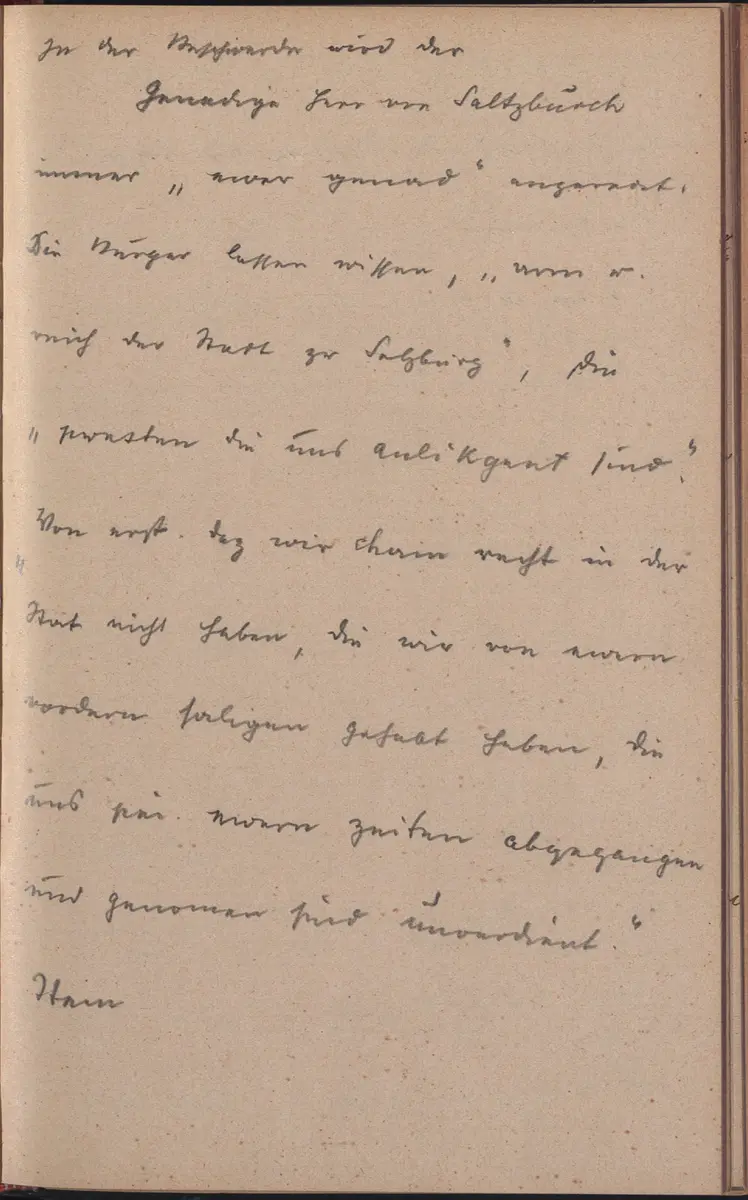 In der Beschwerde wird der
Genedige herr von Saltzburch
immer „ewer genad“ angeredet.
Die Bürger lassen wissen, „arm u.
reich der Statt ze Salzburg“, die
„presten die uns anlikgent sind.“
Von erst. daz wir cham recht in der
Stat nicht haben, die wir von ewern
vordern saligen gehabt haben, die
uns pei ewern zeiten abgegangen
und genomen sind unverdient.“
Item